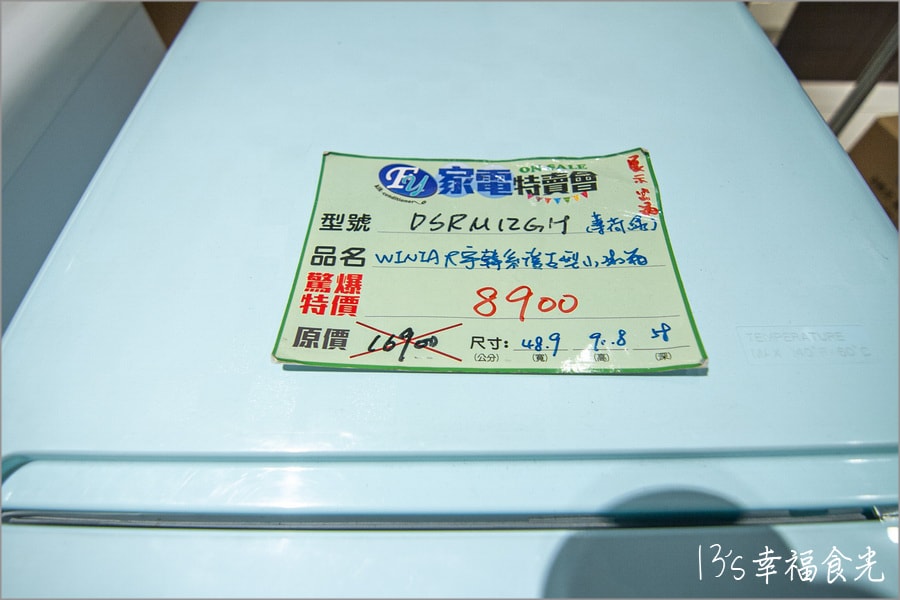 ON SALE
Fy 家電特賣會
Air conditioner
展示出清
型號 DSRM12GH (薄荷綠)
品名 WINIA 大宇韓系復古型小冰箱
驚爆特價 8900
原價 16900 尺寸: 48.9 90.8 58
(公分) (寬) (高) (深)
13's幸福食光